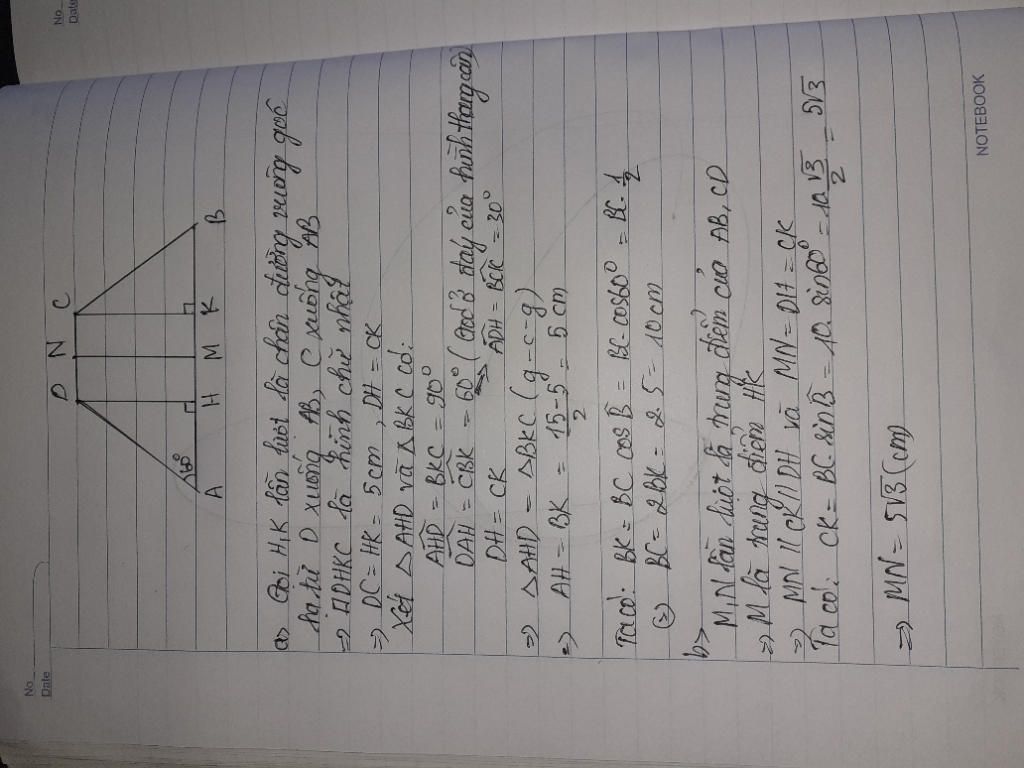 No
Date
D N C
60°
A H M K B
a> Gọi H, K lần lượt là chân đường vuông góc
hạ từ D xuống AB, C xuống AB
=> □DHKC là hình chữ nhật
=> DC = HK = 5cm, DH = CK
Xét △AHD và △BKC có:
AHD = BKC = 90°
DAH = CBK = 60° (góc đáy của hình thang cân)
=> ADH = BCK = 30°
DH = CK
=> △AHD = △BKC (g-c-g)
=> AH = BK = 15-5/2 = 5cm
Ta có: BK = BC cos B = BC.cos60° = BC.1/2
BC = 2BK = 2.5 = 10cm
b>
M, N lần lượt là trung điểm của AB, CD
=> M là trung điểm HK
=> MN // CK // DH và MN = DH = CK
Ta có: CK = BC.sin B = 10.sin60° = 10.√3/2 = 5√3
=> MN = 5√3 (cm)
NOTEBOOK
No
Date